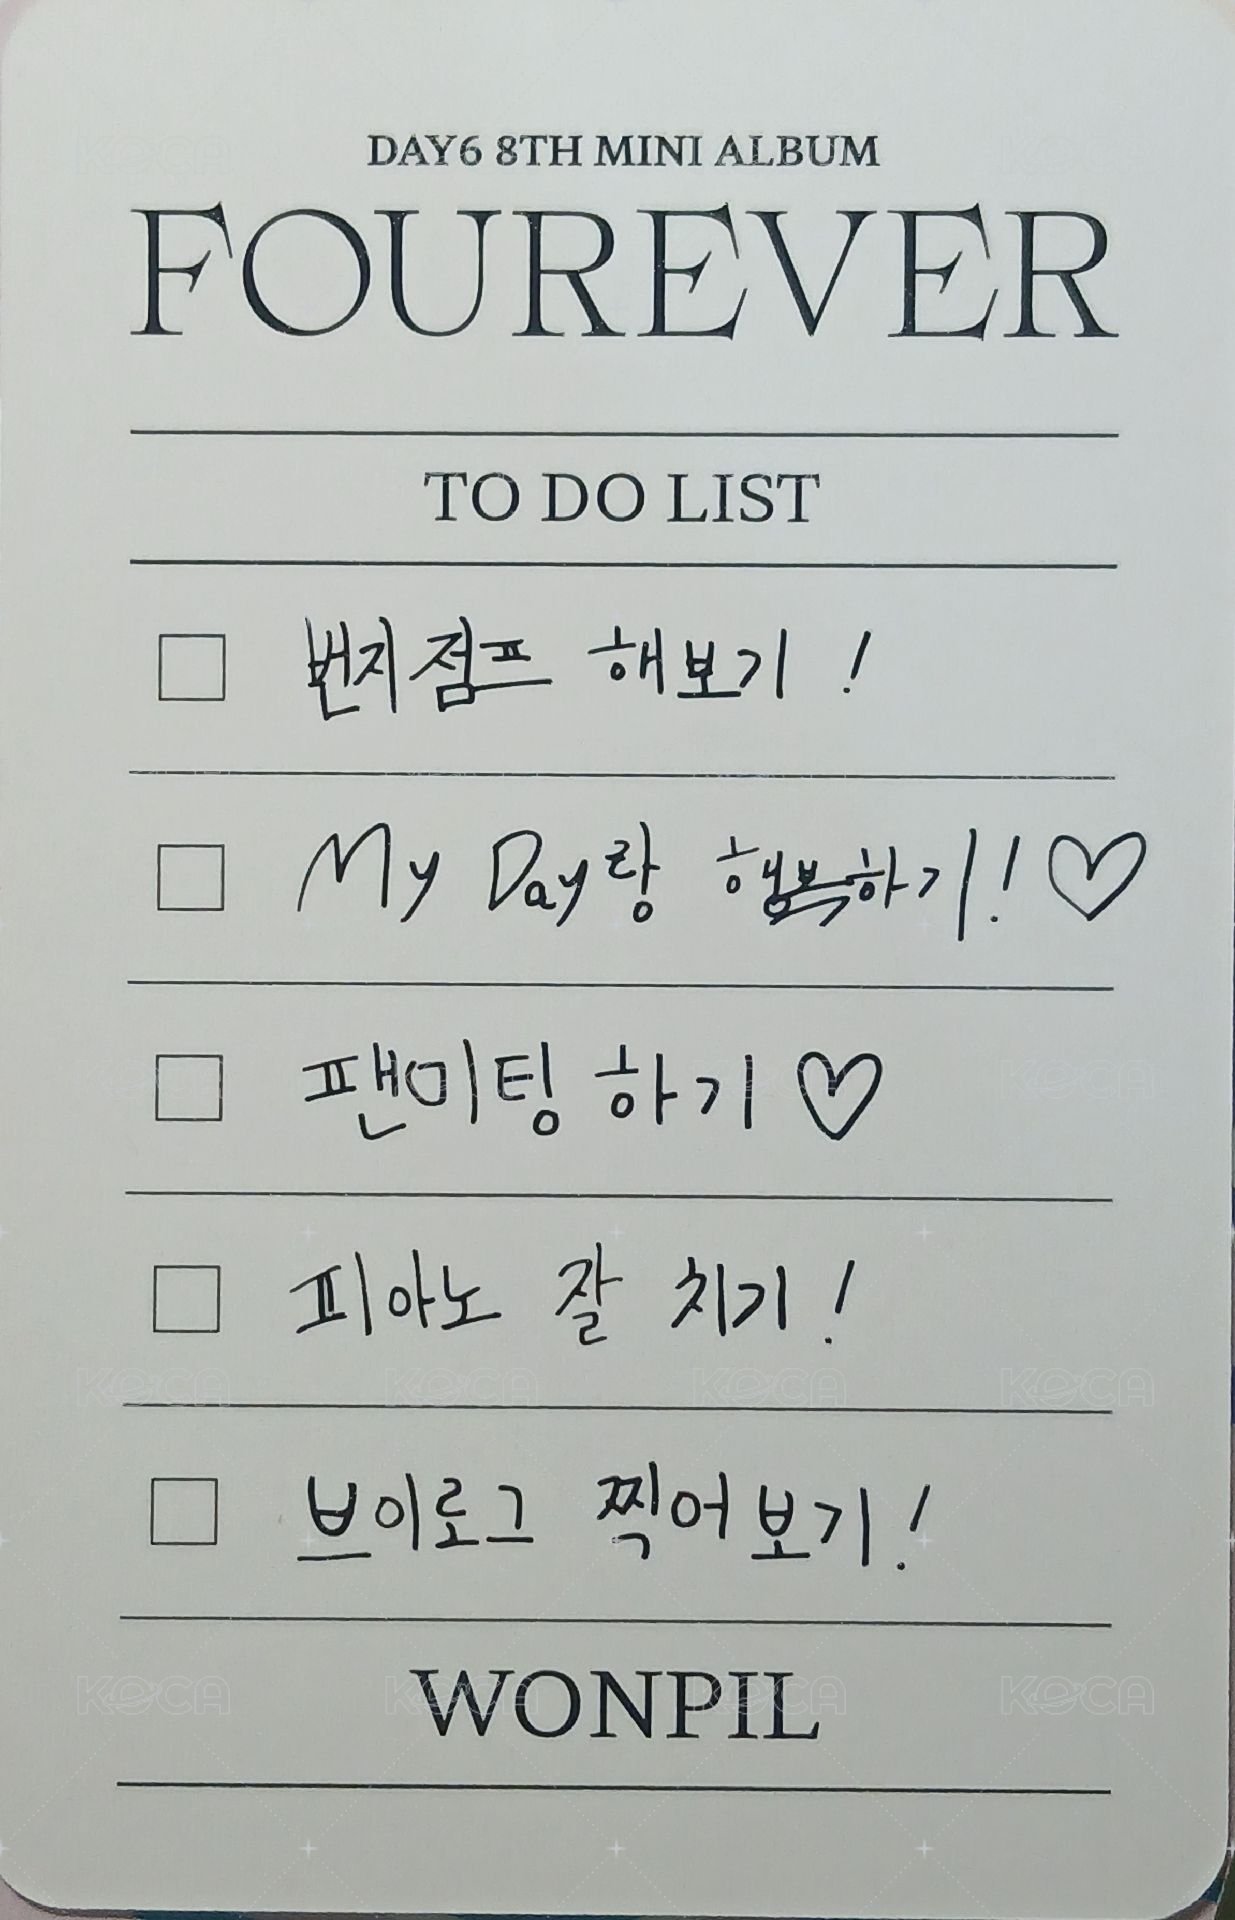 DAY6 8TH MINI ALBUM
FOUREVER
TO DO LIST
번지점프 해보기 !
My Day랑 행복하기! ♡
팬미팅 하기 ♡
피아노 잘 치기 !
브이로그 찍어보기 !
KOCA KOCA KOCA KOCA
WONPIL
KOCA KOCA KOCA KOCA